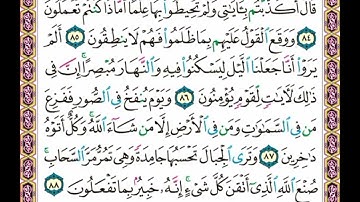 قَالَ أَكَذَّبْتُم بِـَٔايَٰتِى وَلَمْ تُحِيطُوا۟ بِهَا عِلْمًا أَمَّاذَا كُنتُمْ تَعْمَلُونَ
٨٤ وَوَقَعَ ٱلْقَوْلُ عَلَيْهِم بِمَا ظَلَمُوا۟ فَهُمْ لَا يَنطِقُونَ ٨٥ أَلَمْ
يَرَوْا۟ أَنَّا جَعَلْنَا ٱلَّيْلَ لِيَسْكُنُوا۟ فِيهِ وَٱلنَّهَارَ مُبْصِرًا إِنَّ فِى
ذَٰلِكَ لَـَٔايَٰتٍ لِّقَوْمٍ يُؤْمِنُونَ ٨٦ وَيَوْمَ يُنفَخُ فِى ٱلصُّورِ فَفَزِعَ
مَن فِى ٱلسَّمَٰوَٰتِ وَمَن فِى ٱلْأَرْضِ إِلَّا مَن شَآءَ ٱللَّهُ وَكُلٌّ أَتَوْهُ
دَٰخِرِينَ ٨٧ وَتَرَى ٱلْجِبَالَ تَحْسَبُهَا جَامِدَةً وَهِىَ تَمُرُّ مَرَّ ٱلسَّحَابِ
صُنْعَ ٱللَّهِ ٱلَّذِىٓ أَتْقَنَ كُلَّ شَىْءٍ إِنَّهُۥ خَبِيرٌۢ بِمَا تَفْعَلُونَ ٨٨